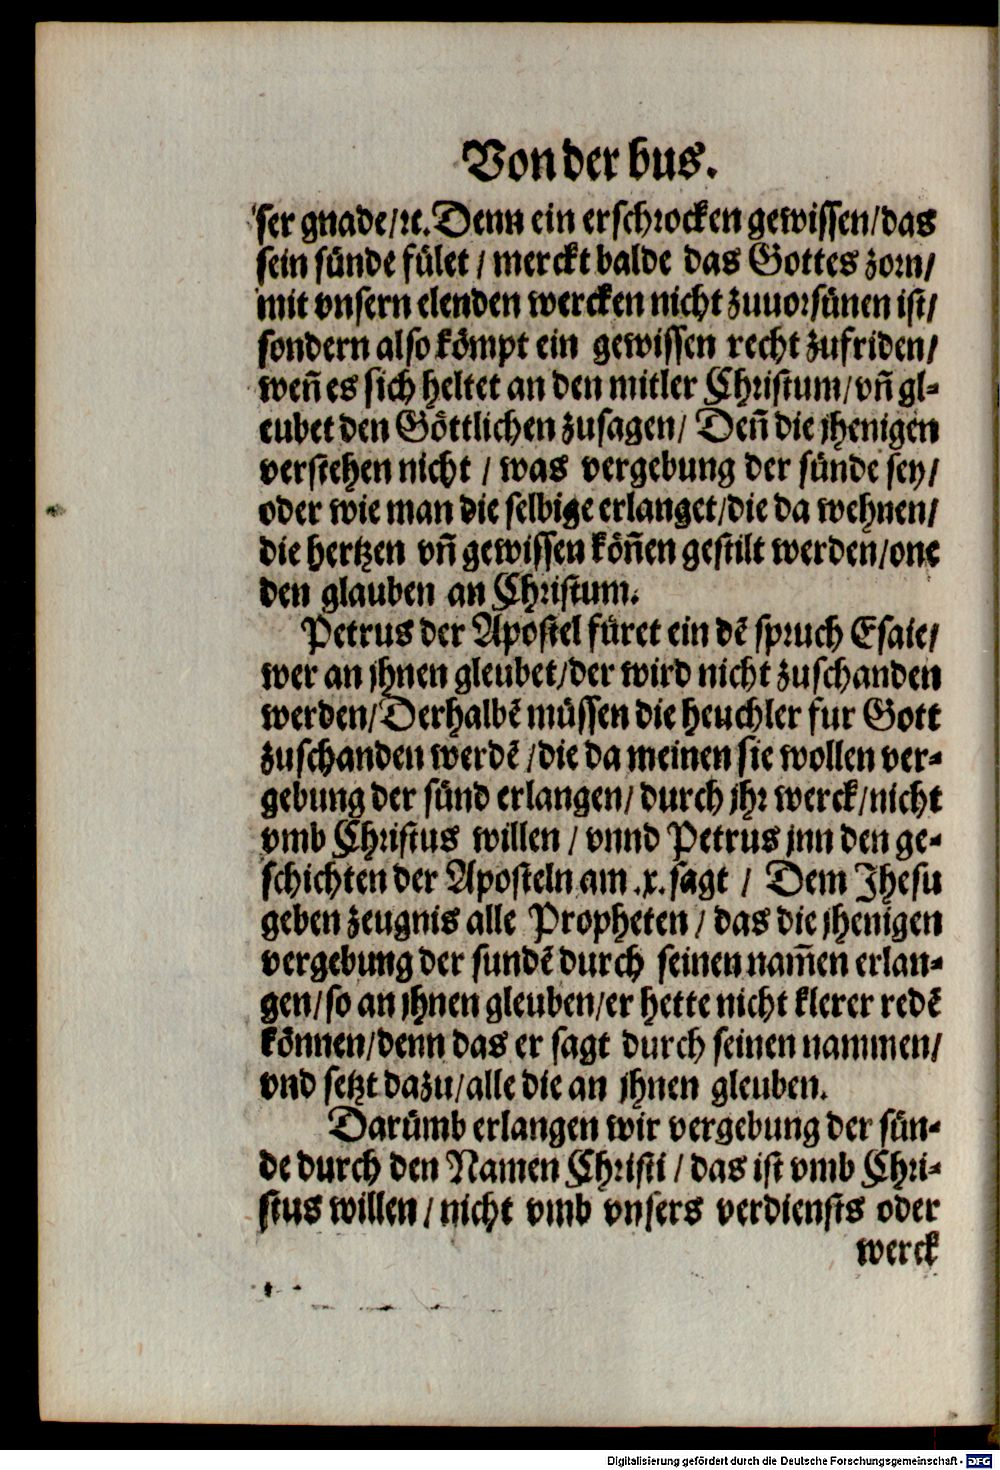 Von der bus.
ser gnade/ꝛc. Denn ein erschrocken gewissen/das
sein sünde fület / merckt balde das Gottes zorn/
mit vnsern elenden wercken nicht zuuorsünen ist/
sondern also kömpt ein gewissen recht zufriden/
weñ es sich heltet an den mitler Christum/vñ gl-
eubet den Göttlichen zusagen/ Deñ die jhenigen
verstehen nicht / was vergebung der sünde sey/
oder wie man die selbige erlanget/die da wehnen/
die hertzen vñ gewissen köñen gestilt werden/one
den glauben an Christum.
Petrus der Apostel füret ein dẽ spruch Esaie/
wer an jhnen gleubet/der wird nicht zuschanden
werden/Derhalbẽ müssen die heuchler fur Gott
zuschanden werdẽ /die da meinen sie wollen ver-
gebung der sünd erlangen/ durch jhr werck/nicht
vmb Christus willen / vnnd Petrus jnn den ge-
schichten der Aposteln am .x. sagt / Dem Jhesu
geben zeugnis alle Propheten / das die jhenigen
vergebung der sundẽ durch seinen nam̃en erlan-
gen/so an jhnen gleuben/er hette nicht klerer redẽ
können/denn das er sagt durch seinen nammen/
vnd setzt dazu/alle die an jhnen gleuben.
Darümb erlangen wir vergebung der sün-
de durch den Namen Christi / das ist vmb Chri-
stus willen / nicht vmb vnsers verdiensts oder
werck
Digitalisierung gefördert durch die Deutsche Forschungsgemeinschaft - DFG